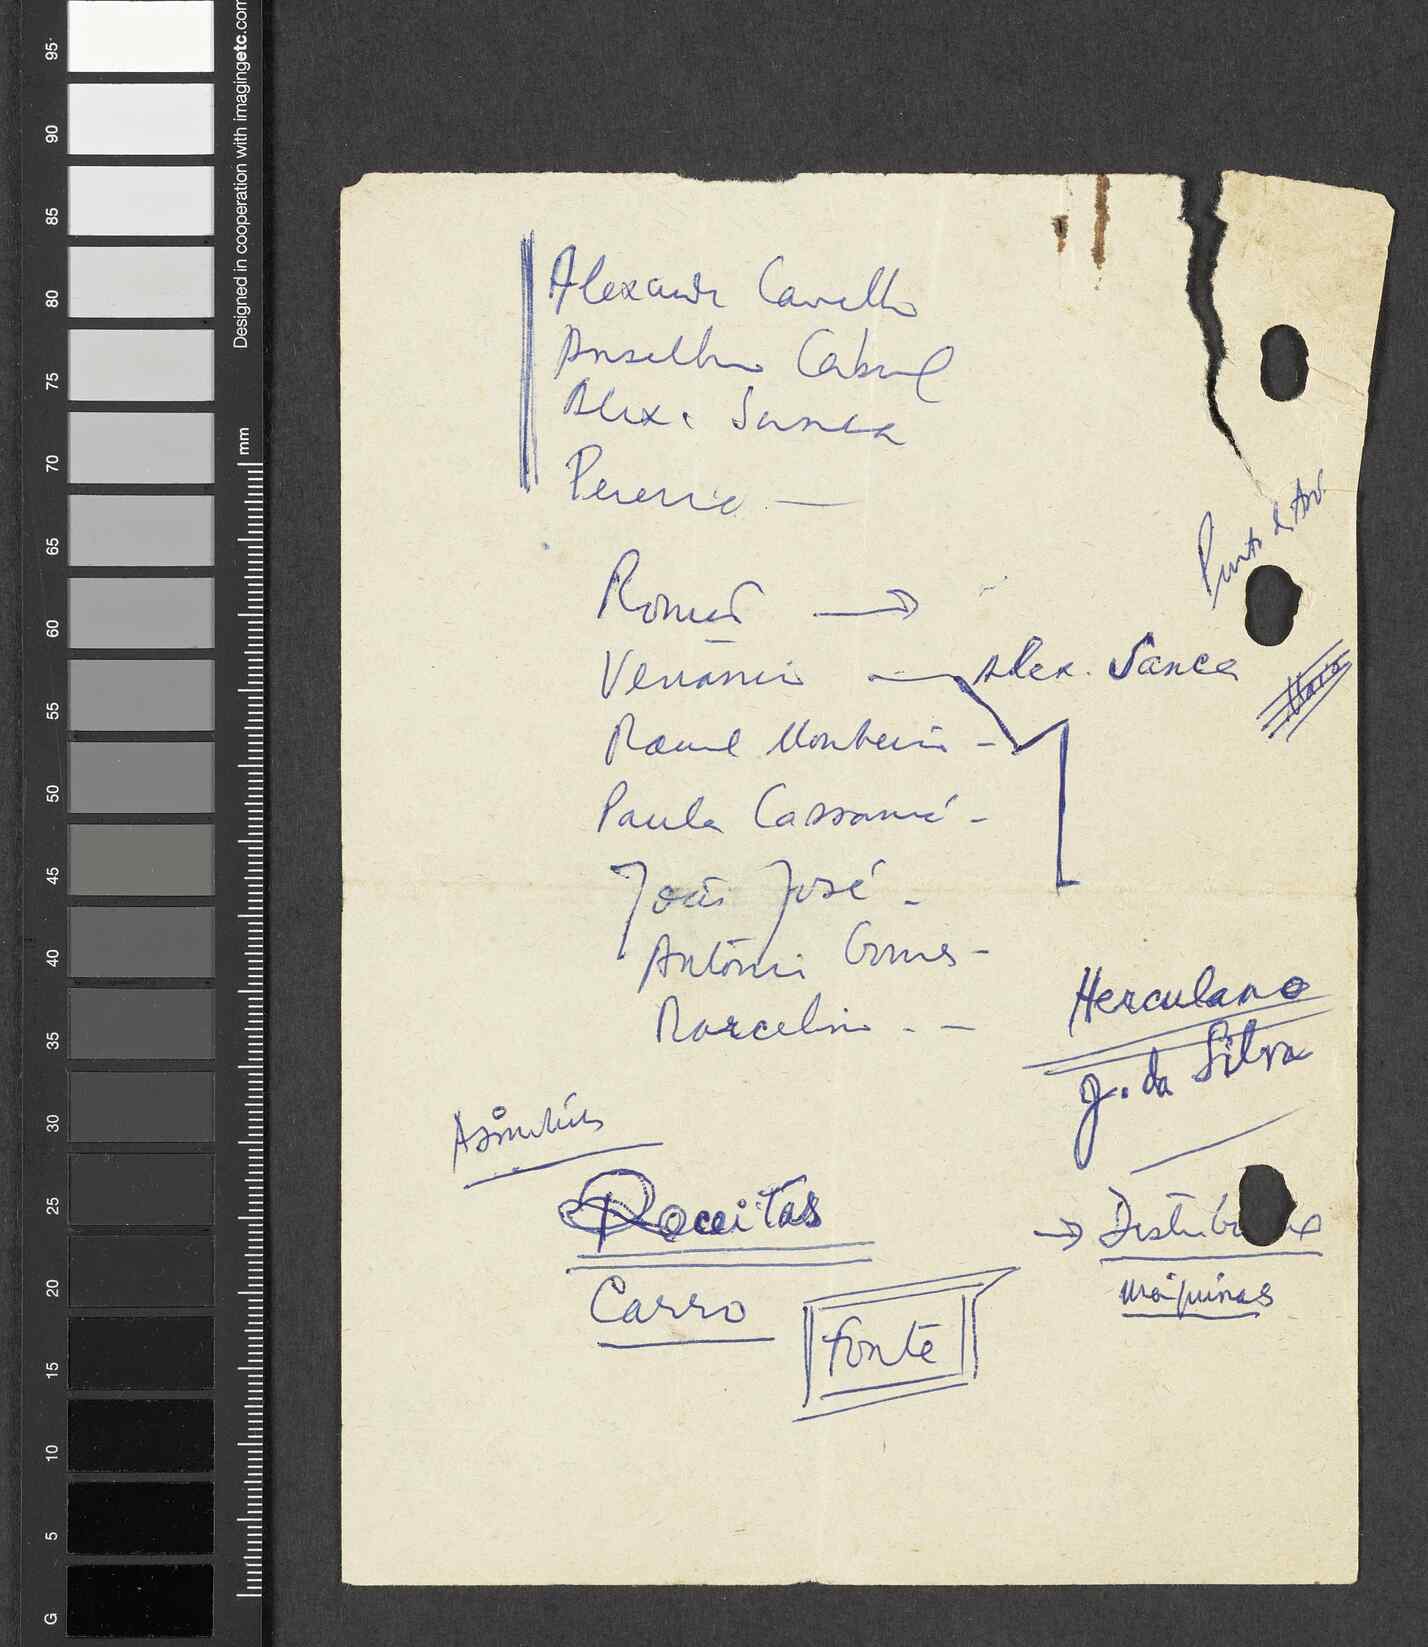 Alexandre Carvalho
Anselmo Cabral
Alex. Sanca
Pereira —
Pinto d'And.
Romeu →
Venâncio — Alex. Sanca
Raul Monteiro -
Paula Cassamá -
João José -
António Gomes -
Marcelino - -
Herculano
J. da Silva
Receitas
→ Distrib
Carro
Máquinas
Fonte
Designed in cooperation with imagingetc.com
mm
95
90
85
80
75
70
65
60
55
50
45
40
35
30
25
20
15
10
5
G